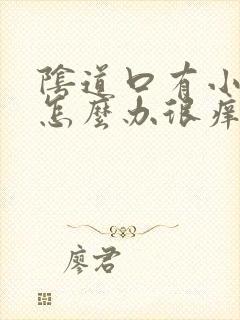 陰道口有小
怎麼办很痒
廖君